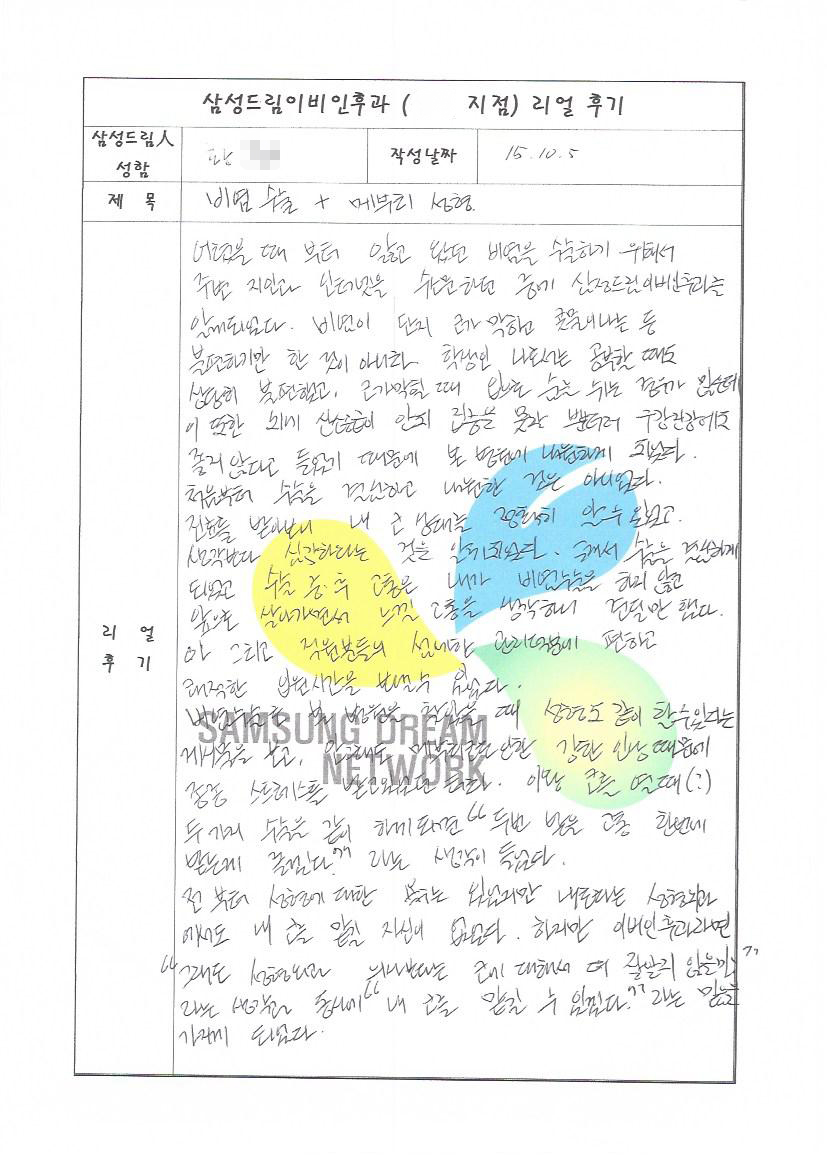 삼성드림이비인후과 ( 지점) 리얼 후기
삼성드림人
성함
작성날짜
15.10.5
제 목
비염 수술 + 메부리 성형.
리 얼
후 기
어렸을 때 부터 앓고 왔던 비염을 수술하기 위해서
주변 지인과 인터넷을 수소문하던 중에 삼성드림이비인후과를
알게되었다. 비염이 단지 코가 막히고 콧물이나는 등
불편하기만 한 것이 아니라 학생인 나로서는 공부할 때도
상당히 불편했고, 코가막힐 때 입으로 숨을 쉬는 경우가 많은데
이 또한 뇌에 산소공급이 안되 집중을 못할 뿐더러 구강건강에도
좋지 않다고 들었기 때문에 본 병원에 내원하게 되었다.
처음부터 수술을 결심하고 내원한 것은 아니었다.
진료를 받아보니 내 코 상태를 정확히 알 수 있었고.
생각보다 심각하다는 것을 알게되었다. 그래서 수술을 결심하게
되었고 수술 중·후 고통은 내가 비염수술을 하지 않고
앞으로 살아가면서 느낄 고통을 생각하니 견딜만 했다.
아 그리고 직원분들의 섬세한 관리덕분에 편하고
쾌적한 입원시간을 보낼수 있었다.
비염수술로 본 병원을 찾았을 때 성형도 같이 할수있다는
게시물을 보고, 안그래도 메부리코로 인한 강한 인상 때문에
종종 스트레스를 받고있었던 터라. 이왕 코를 열때(?)
두가지 수술을 같이 하게되면 “두번 받을 고통 한번에
받는게 좋겠다.” 라는 생각이 들었다.
전 부터 성형에 대한 욕구는 있었지만 내로라는 성형외과
에서도 내 코를 맡길 자신이 없었다. 하지만 이비인후과라면
“그래도 성형외과 의사보다는 코에 대해서 더 잘알지 않을까”
라는 생각과 동시에 “내 코를 맡길 수 있겠다.” 라는 믿음을
가지게 되었다.
SAMSUNG DREAM
NETWORK